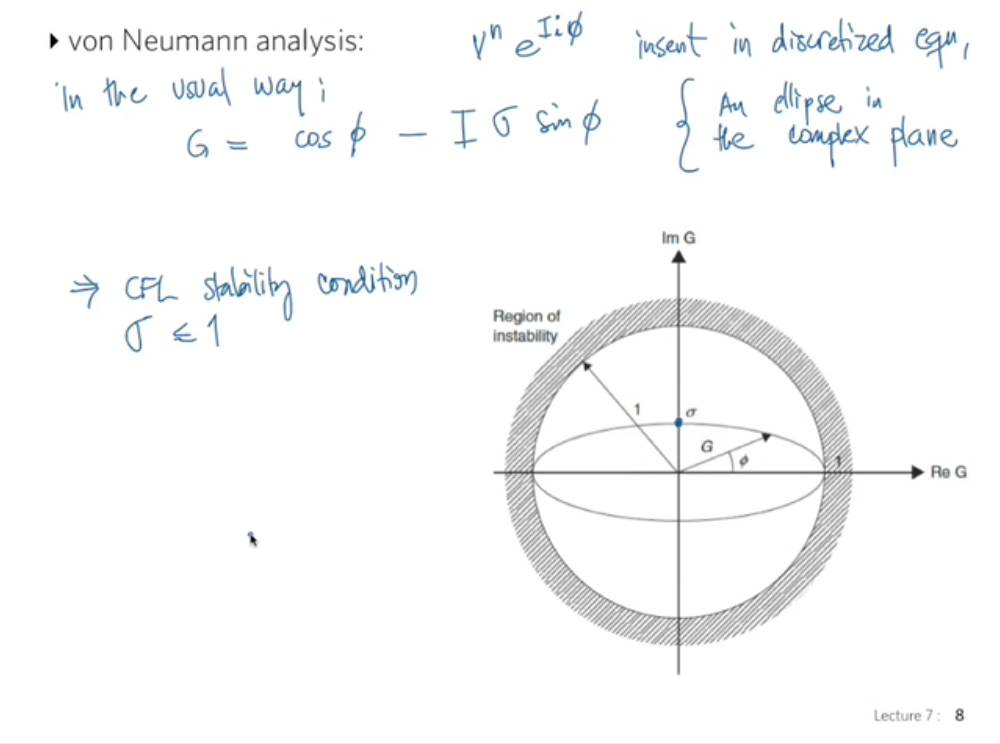 ▸ von Neumann analysis:
Vⁿ e^{Iiϕ} insert in discretized eqn,
in the usual way;
G = cos ϕ − I σ sin ϕ
{ An ellipse in
the complex plane
⇒ CFL stability condition
σ ≤ 1
Im G
Region of
instability
1
σ
G
ϕ
1
Re G
Lecture 7 : 8